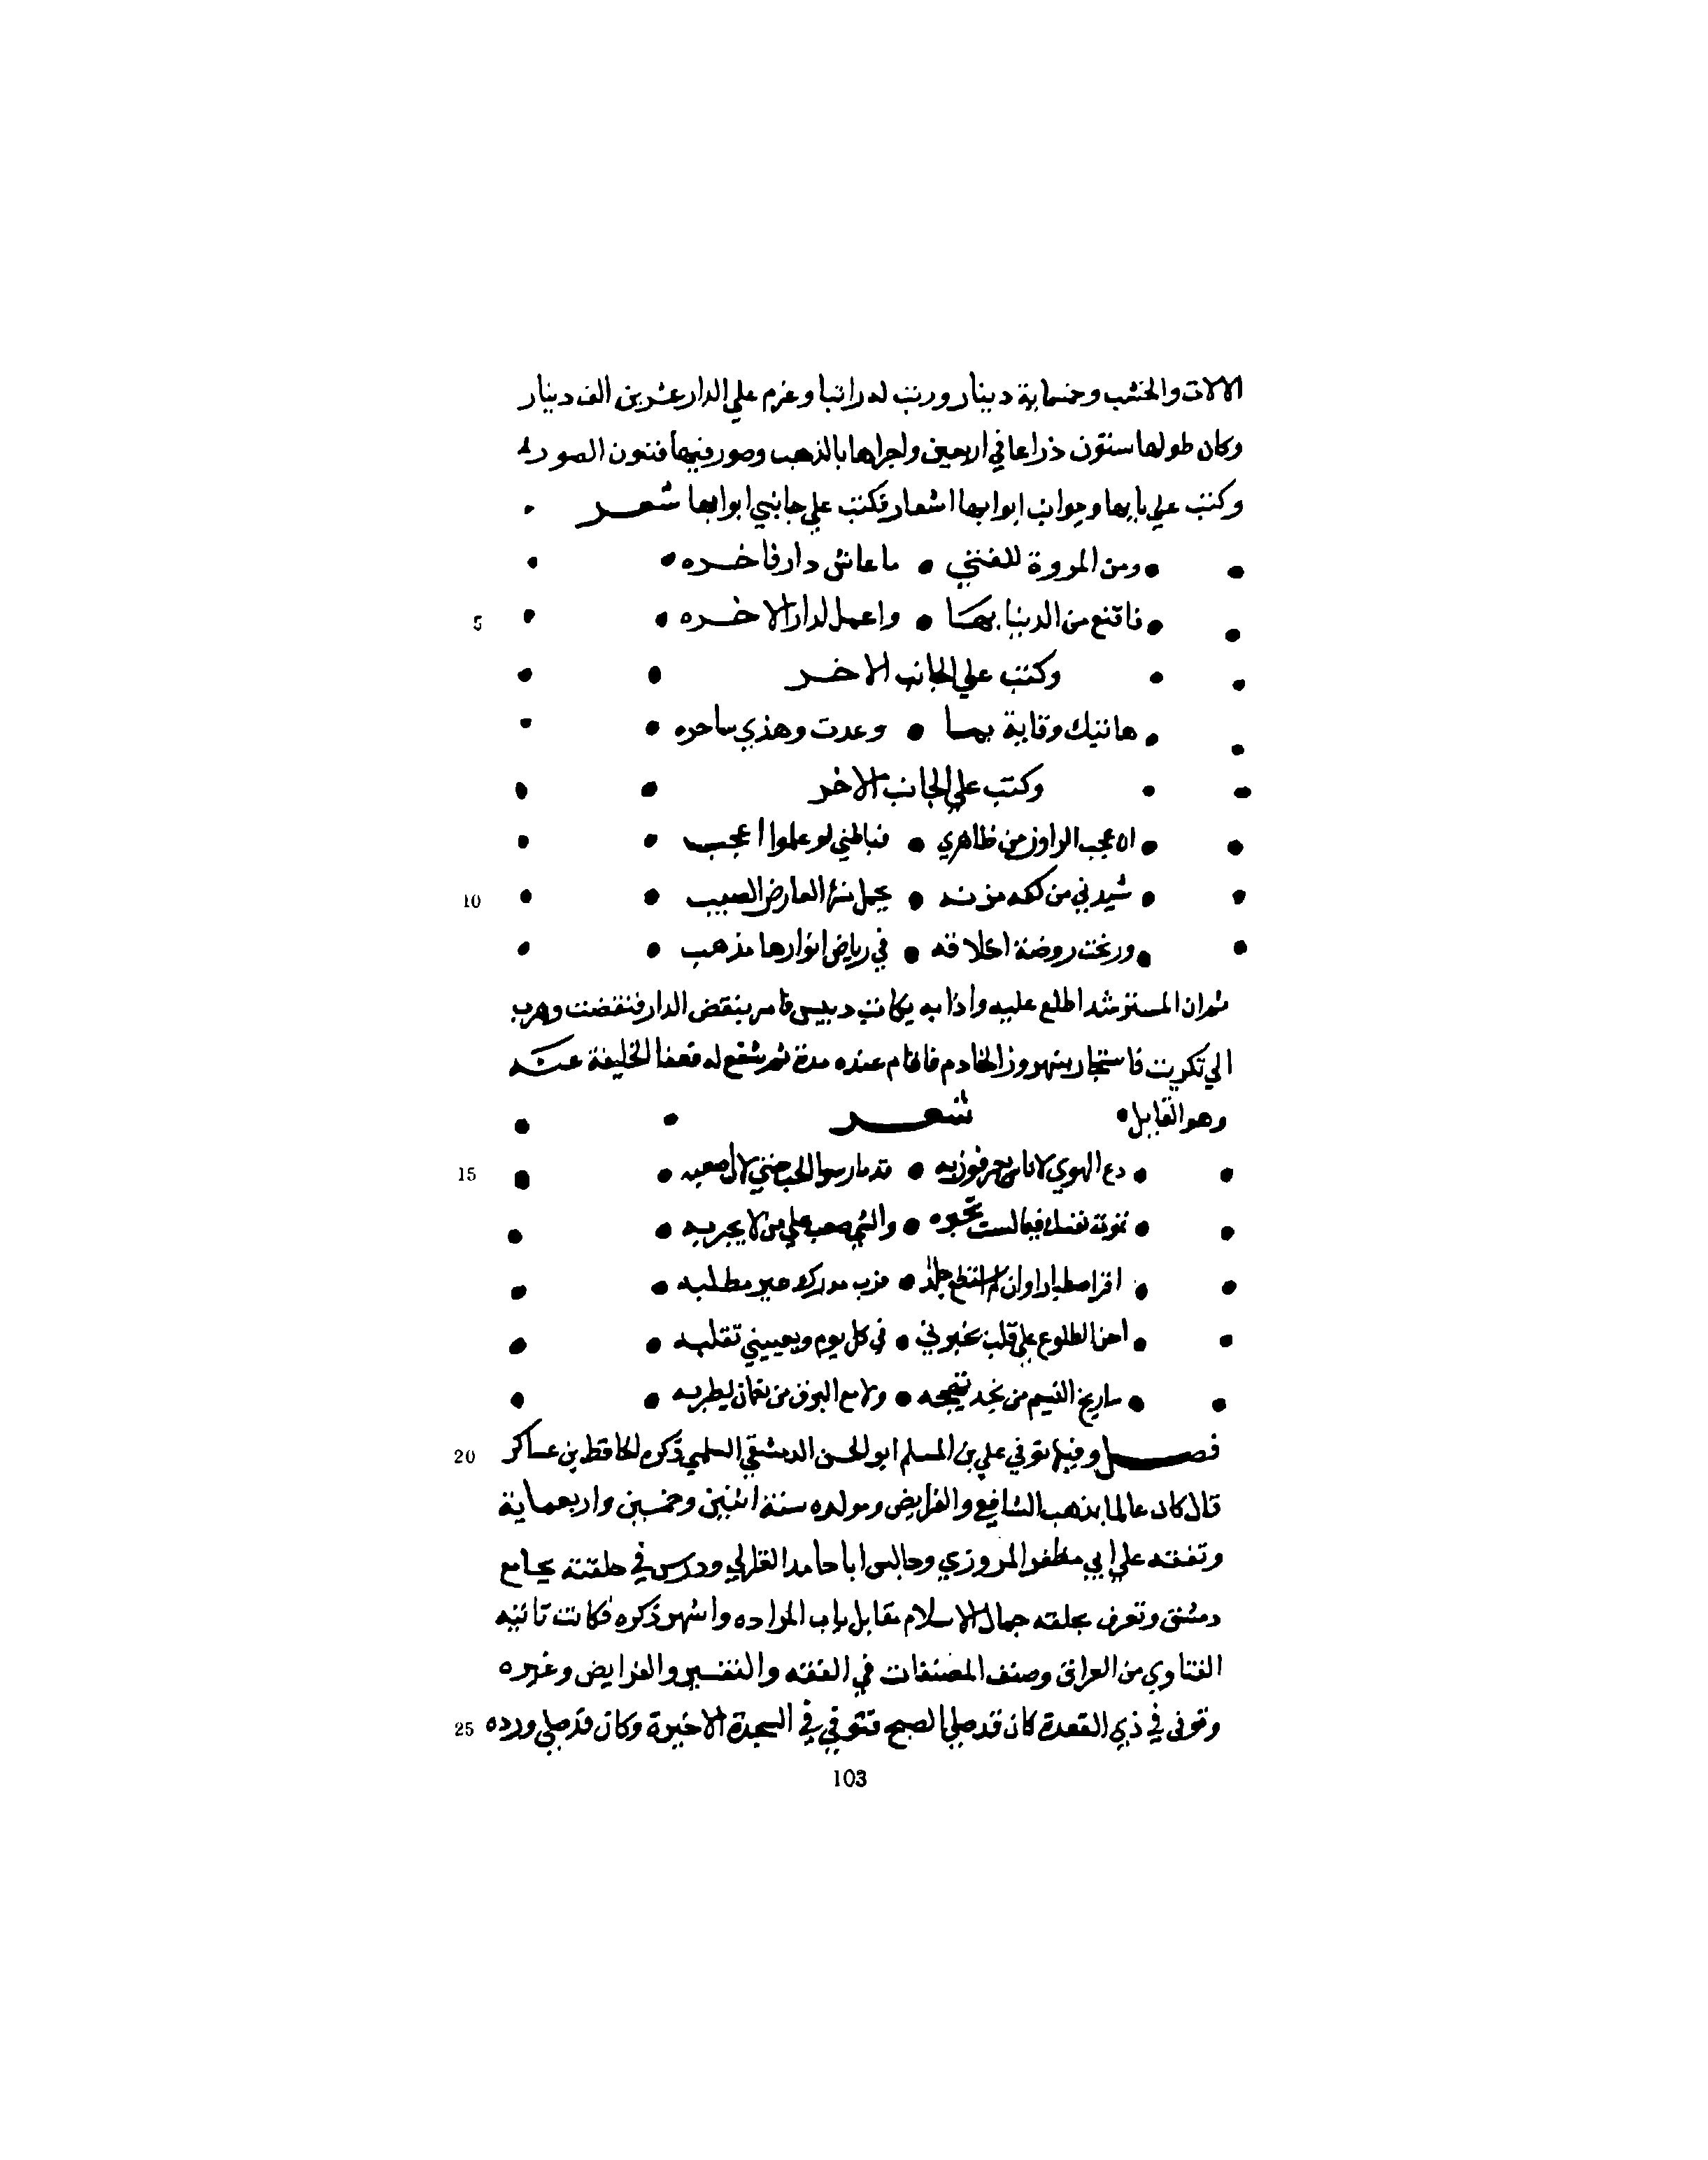 الالات والخشب وخمسماية دينار ورتب له راتبا وغرم علي الدار عشرين الف دينار
وكان طولها ستون ذراعا في اربعين واجراها بالذهب وصور فيها فنون الصور
وكتب علي بابها وجوانب ابوابها اشعار فكتب علي جانبي ابوابها شعر
ومن المروة للفتي • ما عاش دار فاخره
5 فاقنع من الدنيا بها • واعمل لدار الاخره
وكتب علي الجانب الاخر
هاتيك وفاية بها • وعدت وهذي ساحره
وكتب علي الجانب الاخر
ان عجب الراوز من ظاهري • فباطني لو علموا اعجب
10 شيدني من كفه مزنه • يحمل منها العارض الصيب
ورنحت روضة اخلاقه • في رياض انوارها مذهب
ثم ان المسترشد اطلع عليه واذا به يكاتب دبيس فامر بنقض الدار فنقضت وهرب
الي تكريت فاستجار ببهروز الخادم فاقام عنده مدة ثم شفع له فعفا الخليفة عنه
وهو القايل • شعر
15 دع الهوي لاناس يعرفون به • قد مارسوا الحب حتي لان اصعبه
نفسك فيما لست تخبره • والشي صعب علي من لا يجربه
اصطبارا وان لم تستطع جلدا • مدرك مطلبه
احن الطلوع علي قلب يخبرني • في كل يوم ويعييني تقلبه
ريح النسيم من نجد تهيجه • ولامع البرق من نعمان يطربه
20 فصل وفيها توفي علي بن المسلم ابو الحسن الدمشقي السلمي ذكره الحافظ بن عساكر
قال كان عالما بمذهب الشافعي والفرايض ومولده سنة اثنين وخمسين واربعماية
وتفقه علي ابي مظفر المروزي وجالس ابا حامد الغزالي ودرس في حلقته بجامع
دمشق وتعرف بحلقه جمال الاسلام مقابل باب المراده واشهر ذكره فكانت تاتيه
الفتاوي من العراق وصنف المصنفات في الفقه والتفسير والفرايض وغيره
25 وتوفي في ذي القعدة كان قد صلي الصبح فتوفي في السجدة الاخيرة وكان قد صلي ورده
103